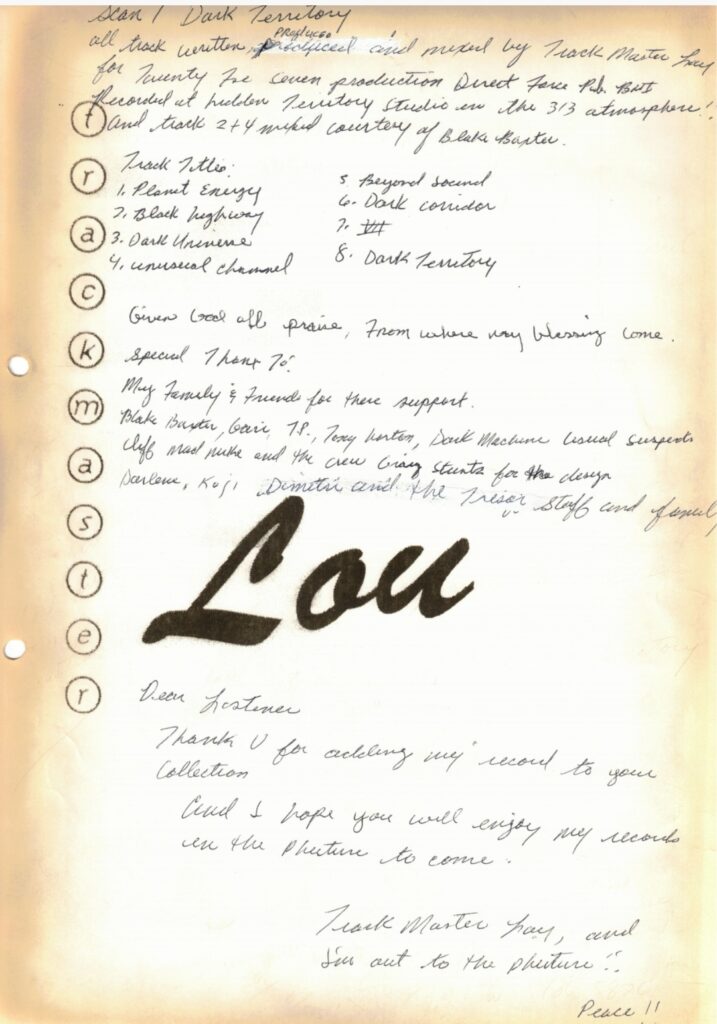 Scan 7 Dark Territory
all track written, produced and mixed by Track Master Lou
Produced
for Twenty Foe seven production Direct Force Pub. BMI
Recorded at hidden Territory Studio in the 313 atmosphere!.
And track 2+4 mixed courtesy of Blake Baxter.
Track Title:
1. Planet Energy
2. Black highway
3. Dark Universe
4. unusual channel
5 Beyond Sound
6. Dark corridor
7. VII
8. Dark Territory
Given God all praise, From where my blessing come.
Special Thanx To:
My Family & Friends for there support.
Blake Baxter, T.P., Tony horton, Dark Machine usual suspects
Cliff mad mike and the crew stuntz for the design
Darlene, Koji, Dimetri and the Tresor Staff and family
trackmaster
Lou
Dear Listener
Thank U for adding my record to your
Collection
And I hope you will enjoy my records
in the phuture to come.
Track Master Lou, and
I'm out to the phuture!!.
Peace !!